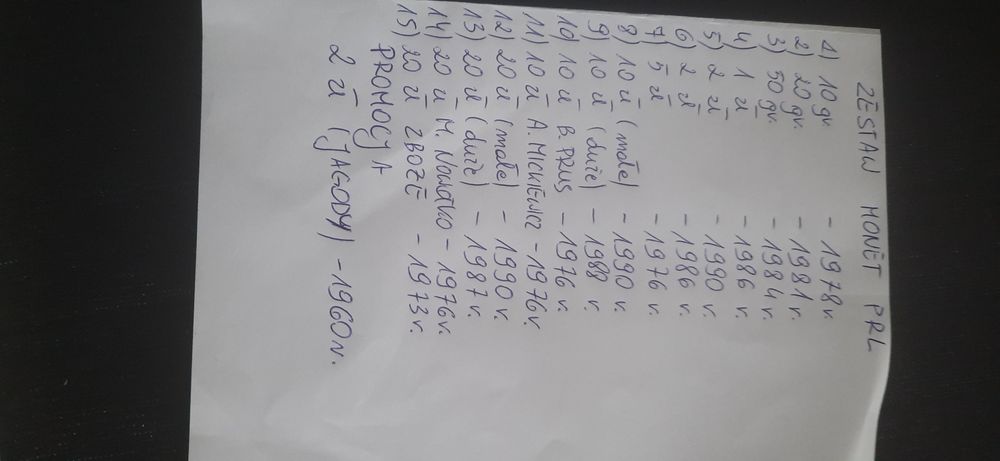 ZESTAW MONET PRL
1) 10 gr. - 1978 r.
2) 20 gr. - 1981 r.
3) 50 gr. - 1984 r.
4) 1 zł - 1986 r.
5) 2 zł - 1990 r.
6) 2 zł - 1986 r.
7) 5 zł - 1976 r.
8) 10 zł (małe) - 1990 r.
9) 10 zł (duże) - 1988 r.
10) 10 zł B. PRUS - 1976 r.
11) 10 zł A. MICKIEWICZ - 1976 r.
12) 20 zł (małe) - 1990 r.
13) 20 zł (duże) - 1987 r.
14) 20 zł M. NOWOTKO - 1976 r.
15) 20 zł ZBOŻE - 1973 r.
PROMOCJA
2 zł (JAGODY) - 1960 r.